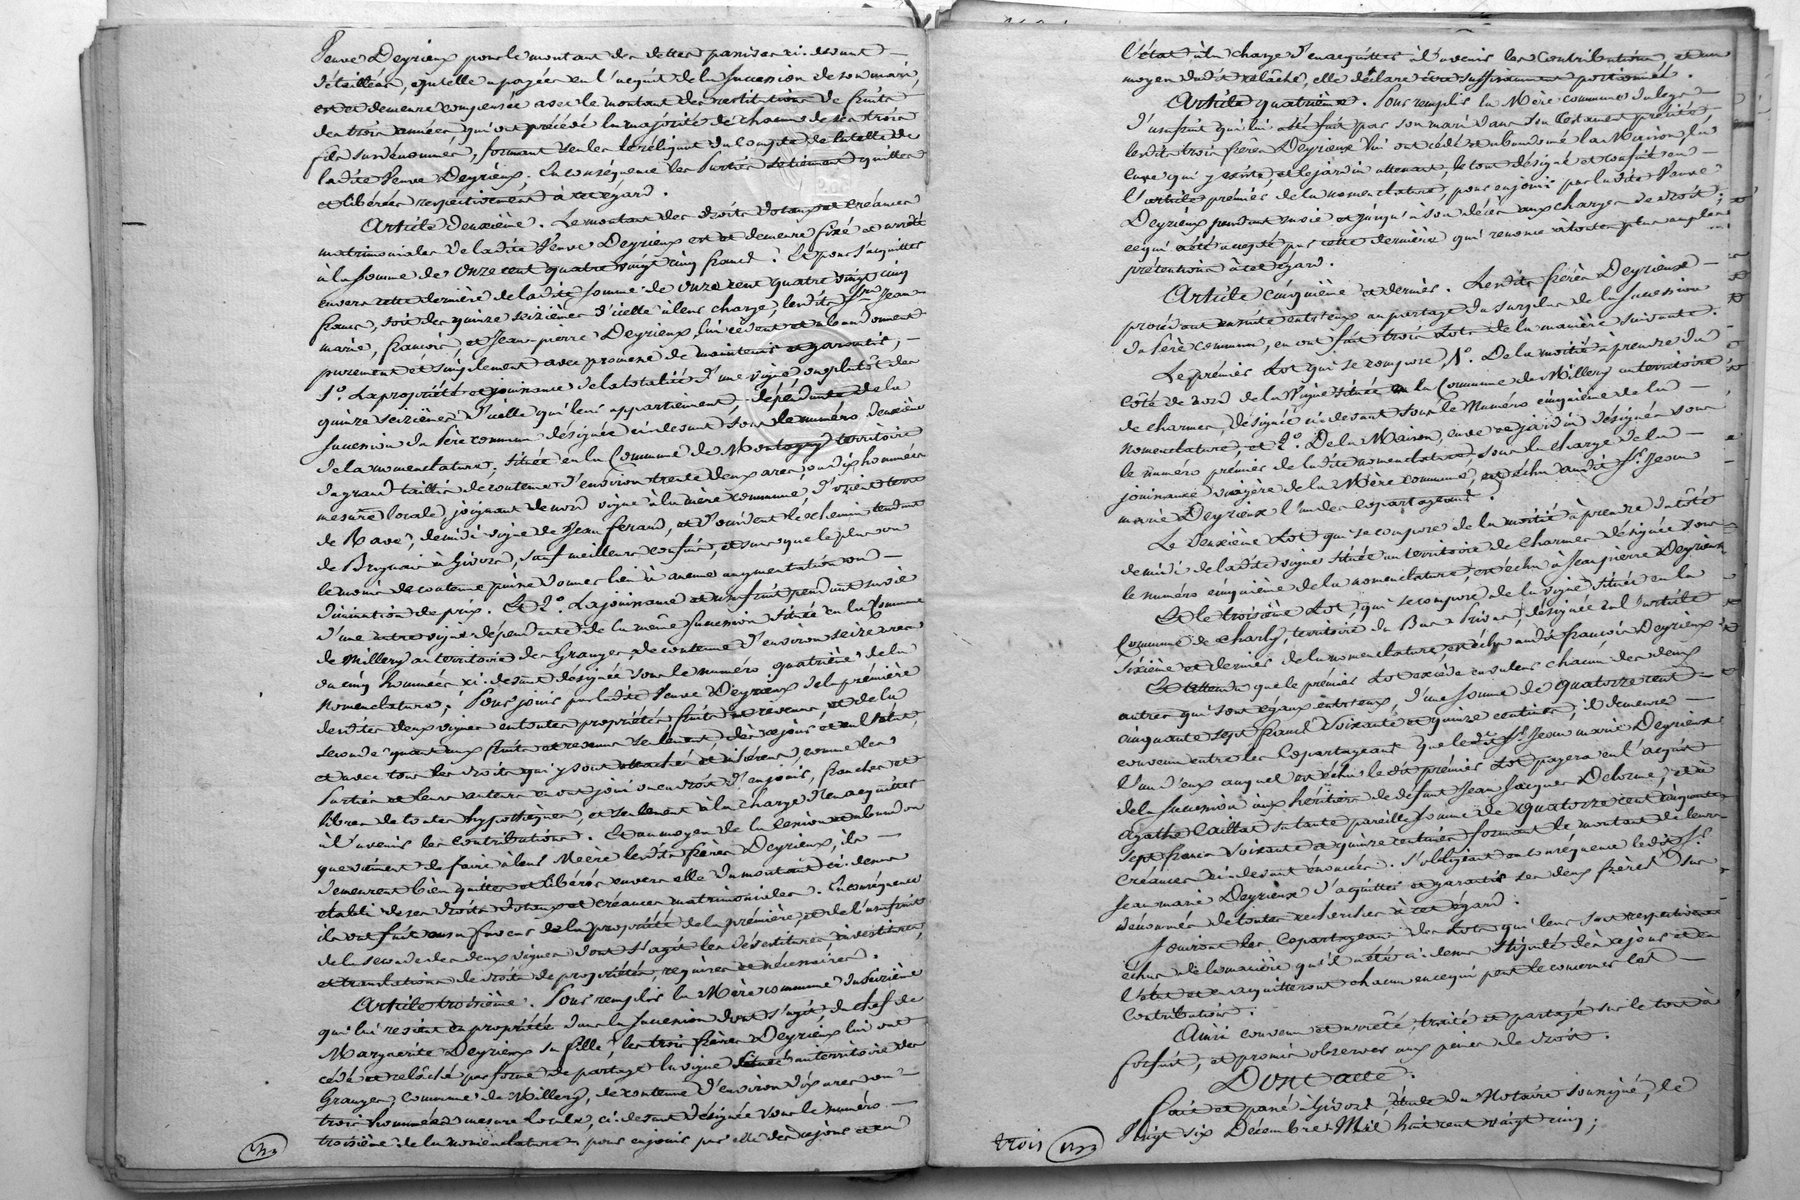 Veuve Deyrieux pour le montant des dettes passives ci-devant
détaillées, qu'elle a payées en l'acquit de la succession de son mari,
est et demeure compensée avec le montant des restitutions de fruits
des trois années qui ont précédé la majorité de chacun de ses trois
fils susdénommés, formant seules le reliquat du compte de tutelle de
ladite Veuve Deyrieux. En conséquence les Parties se tiennent quittes
et libérées respectivement à cet égard.
Article deuxième. Le montant des droits dotaux et créances
matrimoniales de ladite Veuve Deyrieux est et demeure fixé et arrêté
à la somme de Onze cent quatre vingt cinq francs. Et pour s'acquitter
envers cette dernière de ladite somme de Onze cent quatre vingt cinq
francs, soit des quinze seizièmes d'icelle à leur charge, lesdits Srs. Jean
marie, françois, et Jean-pierre Deyrieux, lui cèdent et abandonnent
purement et simplement avec promesse de maintenir et garantir, —
1º. La propriété et jouissance de la totalité d'une vigne ou plutôt des
quinze seizièmes d'icelle qui leur appartiennent, dépendante de la
succession du Père commun désignée ci-devant sous le numéro deuxième
de la nomenclature, située en la Commune de Montagny territoire
du grand taillis de contenue d'environ trente deux ares ou dix hommées
mesure locale, joignant de nord vigne à la mère commune, d'orient terre
de Ravé, de midi vigne de Jean Feraud, et d'occident le chemin tendant
de Brignais à Givors, sauf meilleurs confins, et sans que le plus ou
le moins de contenue puisse donner lieu à aucune augmentation ou —
diminution de prix. Et 2º. La jouissance et usufruit pendant sa vie
d'une autre vigne dépendante de la même succession située en la Commune
de Millery au territoire des Granges, de contenue d'environ seize ares
ou cinq hommées ci-devant désignée sous le numéro quatrième de la
nomenclature; Pour jouir par ladite Veuve Deyrieux de la première
desdites deux vignes en toutes propriétés, fruits et revenus, et de la
seconde quant aux fruits et revenus seulement, dès ce jour et en l'état,
et avec tous les droits qui y sont attachés et inhérens, comme les
Parties et leurs auteurs en ont joui ou eu droit d'en jouir, franches et
libres de toutes hypothèques, et seulement à la charge d'en acquitter
à l'avenir les contributions. Et au moyen de la cession et abandon
que viennent de faire à leur Mère lesdits frères Deyrieux, ils —
demeurent bien quittes et libérés envers elle du montant ci-dessus
établi de ses droits dotaux et créances matrimoniales. En conséquence
ils ont fait en sa faveur de la propriété de la première, et de l'usufruit
de la seconde des deux vignes dont s'agit les dévestitures, investitures,
et translations de droits de propriétés, requises et nécessaires.
Article troisième. Pour remplir la Mère commune du seizième
qui lui revient en propriété dans la succession dont s'agit, du chef de
Marguerite Deyrieux sa fille, les trois frères Deyrieux lui ont
cédé et relâché par forme de partage la vigne située au territoire des
Granges, Commune de Millery, de contenue d'environ dix ares ou —
trois hommées mesure locale, ci-devant désignée sous le numéro —
troisième de la nomenclature pour en jouir par elle dès ce jour et en
l'état à la charge d'en acquitter à l'avenir les Contributions, et au
moyen dudit relâché, elle déclare être suffisamment portionnée.
Article quatrième. Pour remplir la Mère commune du legs —
d'usufruit qui lui a été fait par son mari dans son testament précité,
lesdits trois frères Deyrieux lui ont cédé et abandonné la Maison, la
cuve qui y existe, et le jardin attenant, le tout désigné et confiné en —
l'article premier de la nomenclature, pour en jouir par ladite Veuve
Deyrieux pendant sa vie et jusqu'à son décès aux charges de droit;
ce qui a été accepté par cette dernière qui renonce à toutes plus amples
prétentions à cet égard.
Article cinquième et dernier. Lesdits frères Deyrieux —
procédant ensuite entr'eux au partage du surplus de la succession
du Père commun, en ont fait trois Lots de la manière suivante.
Le premier Lot qui se compose, 1º. De la moitié à prendre du
côté de nord de la Vigne située en la Commune de Millery au territoire
de charmes, désignée ci-devant sous le Numéro cinquième de la —
nomenclature, et 2º. De la Maison, cuve et jardin désignés sous
le numéro premier de ladite nomenclature, sous la charge de la —
jouissance viagère de la Mère commune, est échu audit Sr. Jean
marie Deyrieux l'un des copartageans.
Le deuxième Lot qui se compose de la moitié à prendre du côté
de midi de ladite vigne située au territoire de charmes désignée sous
le numéro cinquième de la nomenclature, est échu à Jean pierre Deyrieux
Et le troisième Lot, qui se compose de la vigne située en la
Commune de Charly, territoire du Bas-Privas, désignée en l'article
sixième et dernier de la nomenclature, est échu audit françois Deyrieux.
Et attendu que le premier Lot excède en valeur chacun des deux
autres qui sont égaux entr'eux, d'une somme de quatorze cent —
cinquante sept francs soixante et quinze centimes, il demeure —
convenu entre les Copartageans que ledit Sr. Jean marie Deyrieux
l'un d'eux auquel est échu ledit premier Lot payera en l'acquit
de la succession aux héritiers de défunt Jean Jacques Delorme, et à
Agathe Caillat sa tante pareille somme de quatorze cent cinquante
sept francs soixante et quinze centimes formant le montant de leurs
créances ci-devant énoncées. S'obligeant en conséquence ledit Sr.
Jean marie Deyrieux d'acquitter et garantir ses deux frères sus
dénommés de toutes recherches à cet égard.
Jouiront les Copartageans des Lots qui leur sont respectivement
échus de la manière qu'il a été ci-dessus stipulé dès ce jour et en
l'état et en acquitteront chacun en ce qui peut le concerner les —
contributions.
Ainsi convenu et arrêté, traité et partagé sur le tout à
forfait, et promis observer aux peines de droit.
Dont acte.
Fait et passé à Givors, étude du Notaire soussigné, le
Vingt six Décembre Mil huit cent vingt cinq;
trois